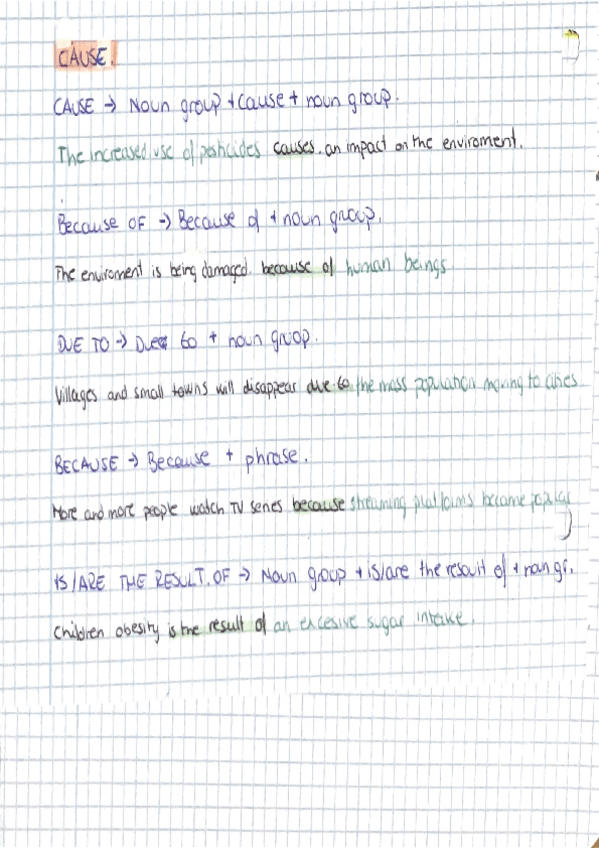 CAUSE.
CAUSE → Noun group + Cause + noun group.
The increased use of pesticides causes an impact on the enviroment.
Because OF → Because of + noun group.
The enviroment is being damaged because of human beings
DUE TO → Due to + noun gruop.
Villages and small towns will disappear due to the mass population moving to cities
BECAUSE → Because + phrase.
More and more people watch TV series because streaming platforms became popular
IS/ARE THE RESULT OF → Noun group + is/are the resault of + noun gr.
Children obesity is the result of an excesive sugar intake.